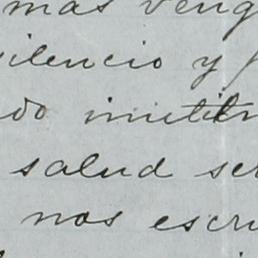 mas veng
silencio y
do inutil
salud se
nos escri